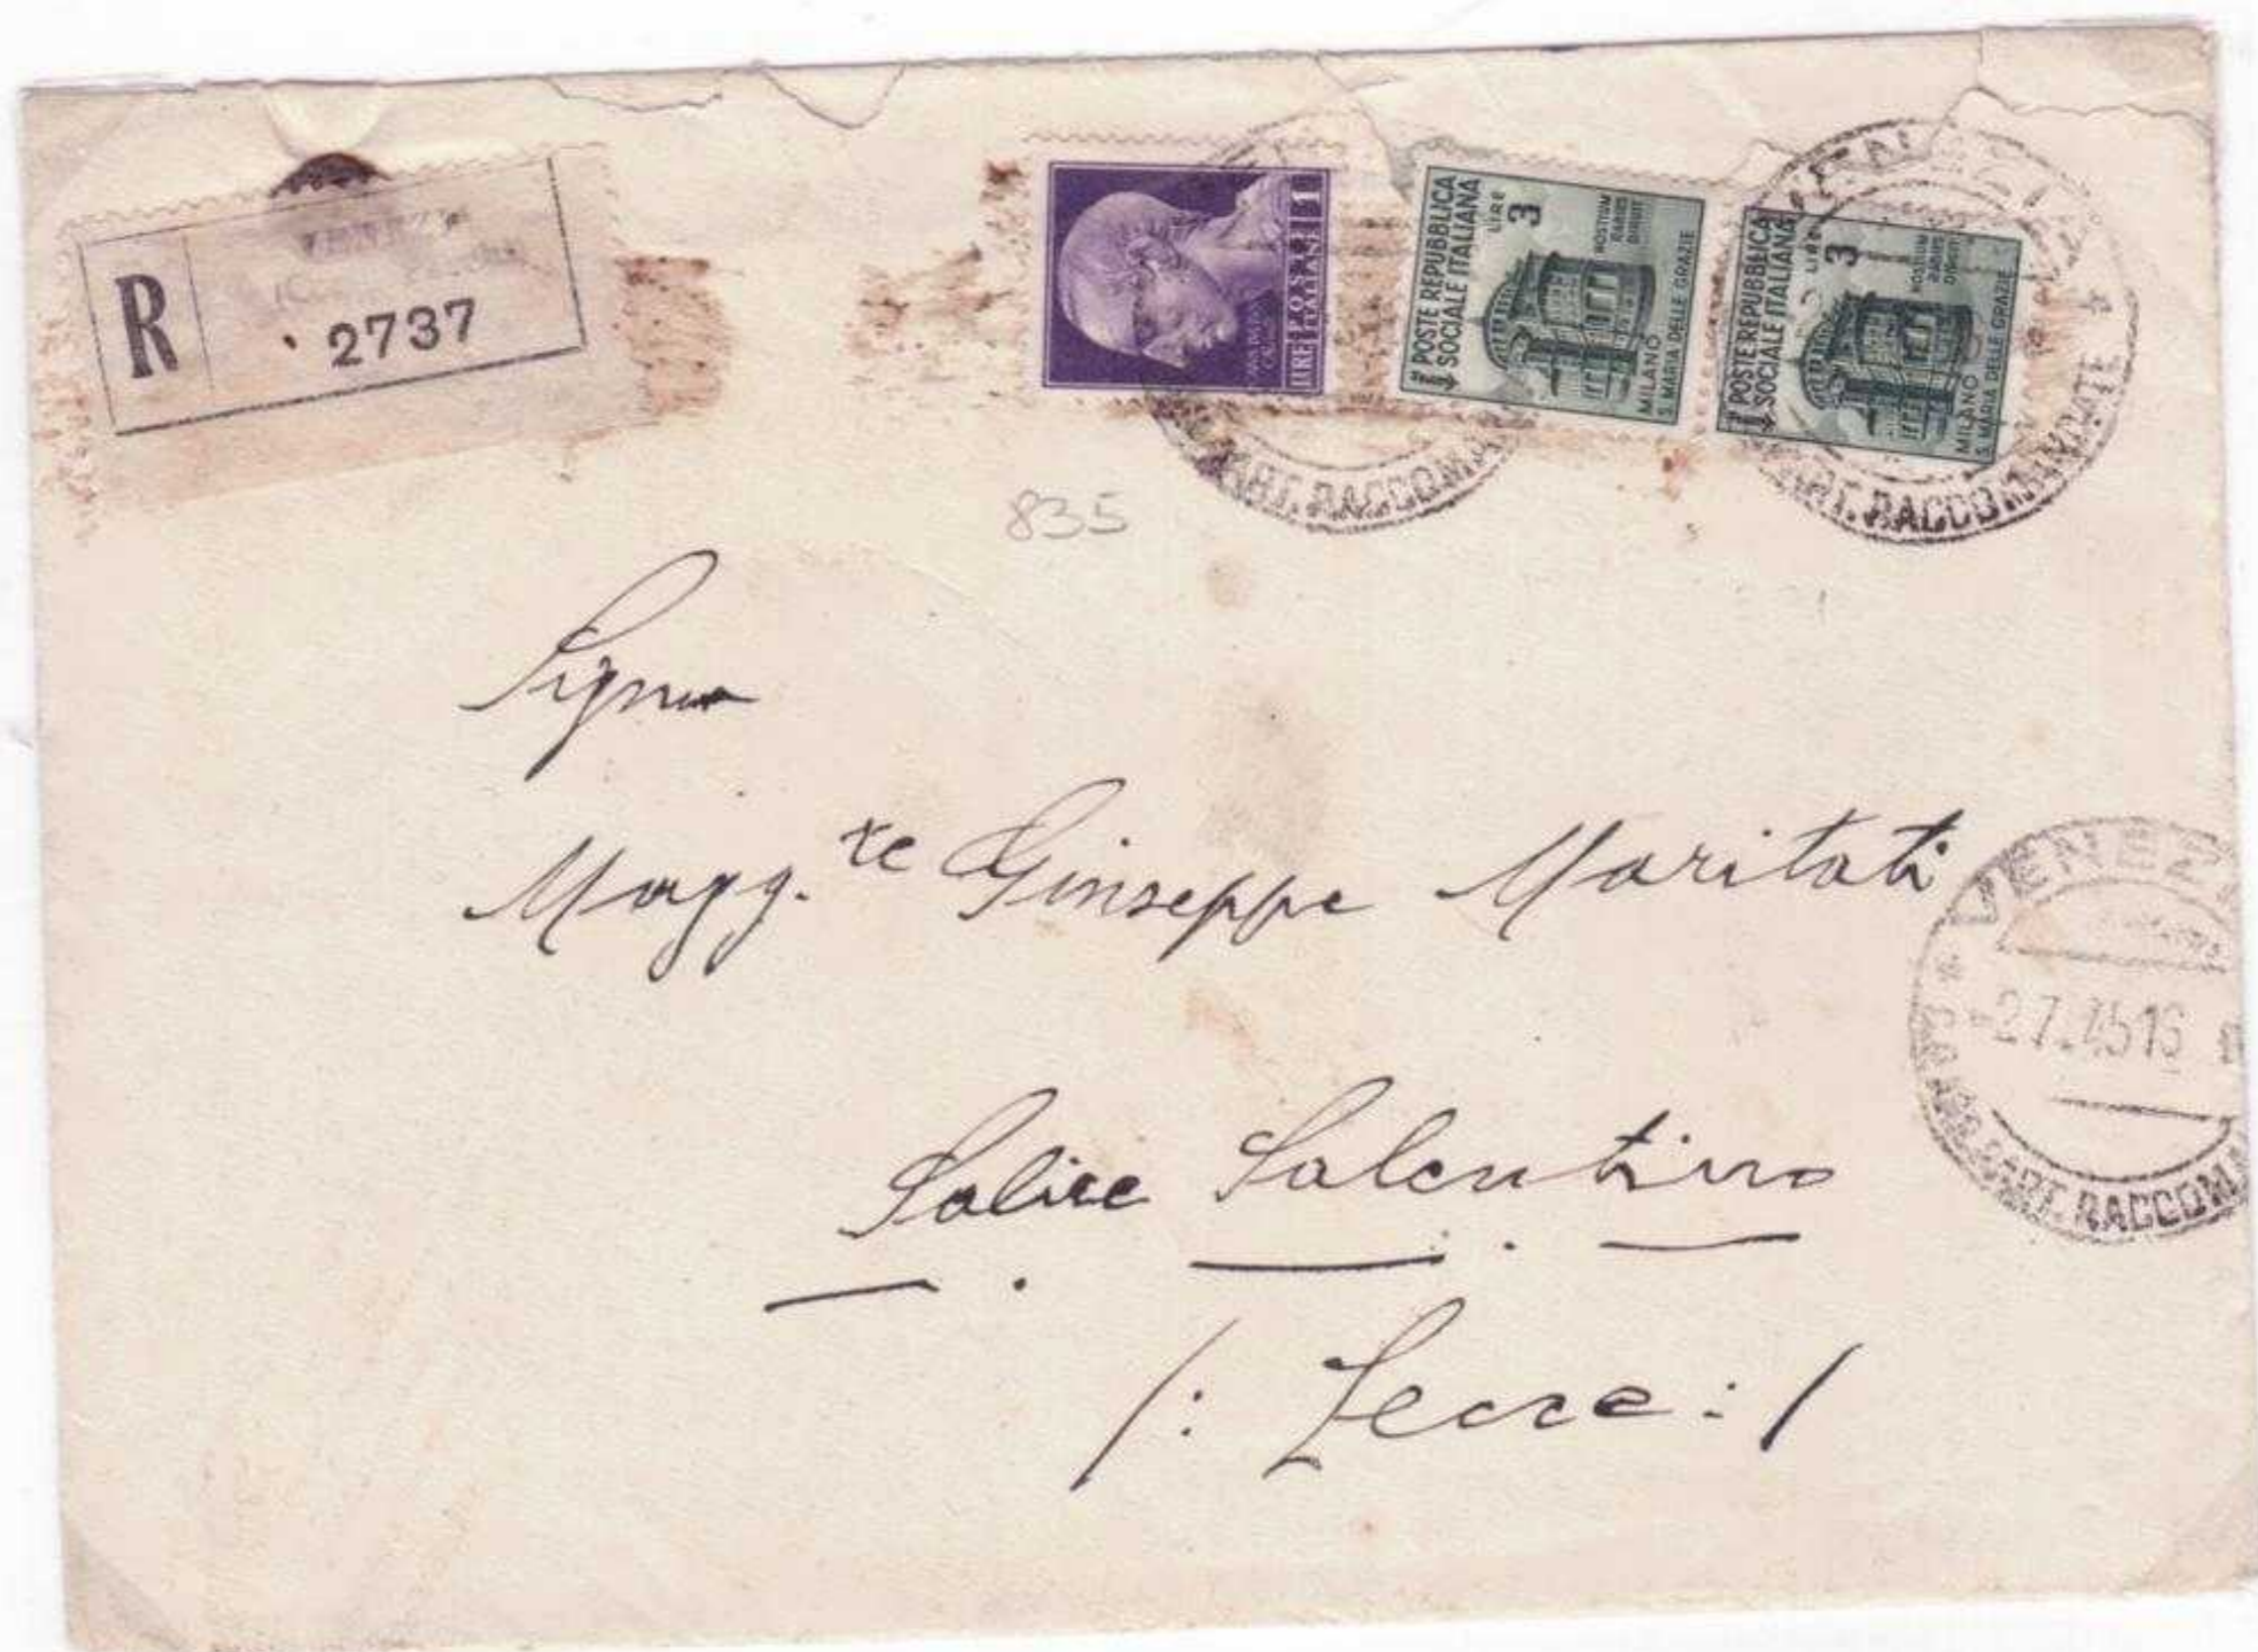 R
2737
LIRE POSTE ITALIANE 1
POSTE REPUBBLICA
SOCIALE ITALIANA
LIRE
3
HOSTIUM
RABIES
DIRUIT
MILANO
S. MARIA DELLE GRAZIE
POSTE REPUBBLICA
SOCIALE ITALIANA
LIRE
3
HOSTIUM
RABIES
DIRUIT
MILANO
S. MARIA DELLE GRAZIE
VENEZIA
ART. RACCOMA
ART. RACCOMANDATE
835
Signor
Magg.re Giuseppe Maritati
VENEZI
-2.7.45 16
ART. RACCOMA
Salice Salentino
/: Lecce :/